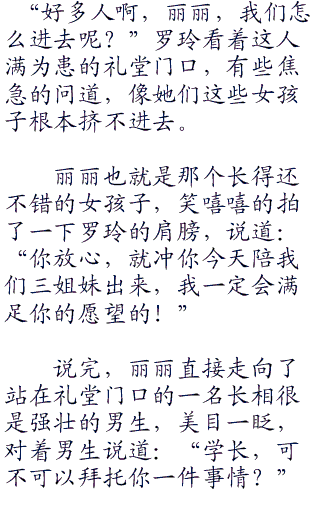 “好多人啊，丽丽，我们怎
么进去呢？”罗玲看着这人
满为患的礼堂门口，有些焦
急的问道，像她们这些女孩
子根本挤不进去。
丽丽也就是那个长得还
不错的女孩子，笑嘻嘻的拍
了一下罗玲的肩膀，说道：
“你放心，就冲你今天陪我
们三姐妹出来，我一定会满
足你的愿望的！”
说完，丽丽直接走向了
站在礼堂门口的一名长相很
是强壮的男生，美目一眨，
对着男生说道：“学长，可
不可以拜托你一件事情？”